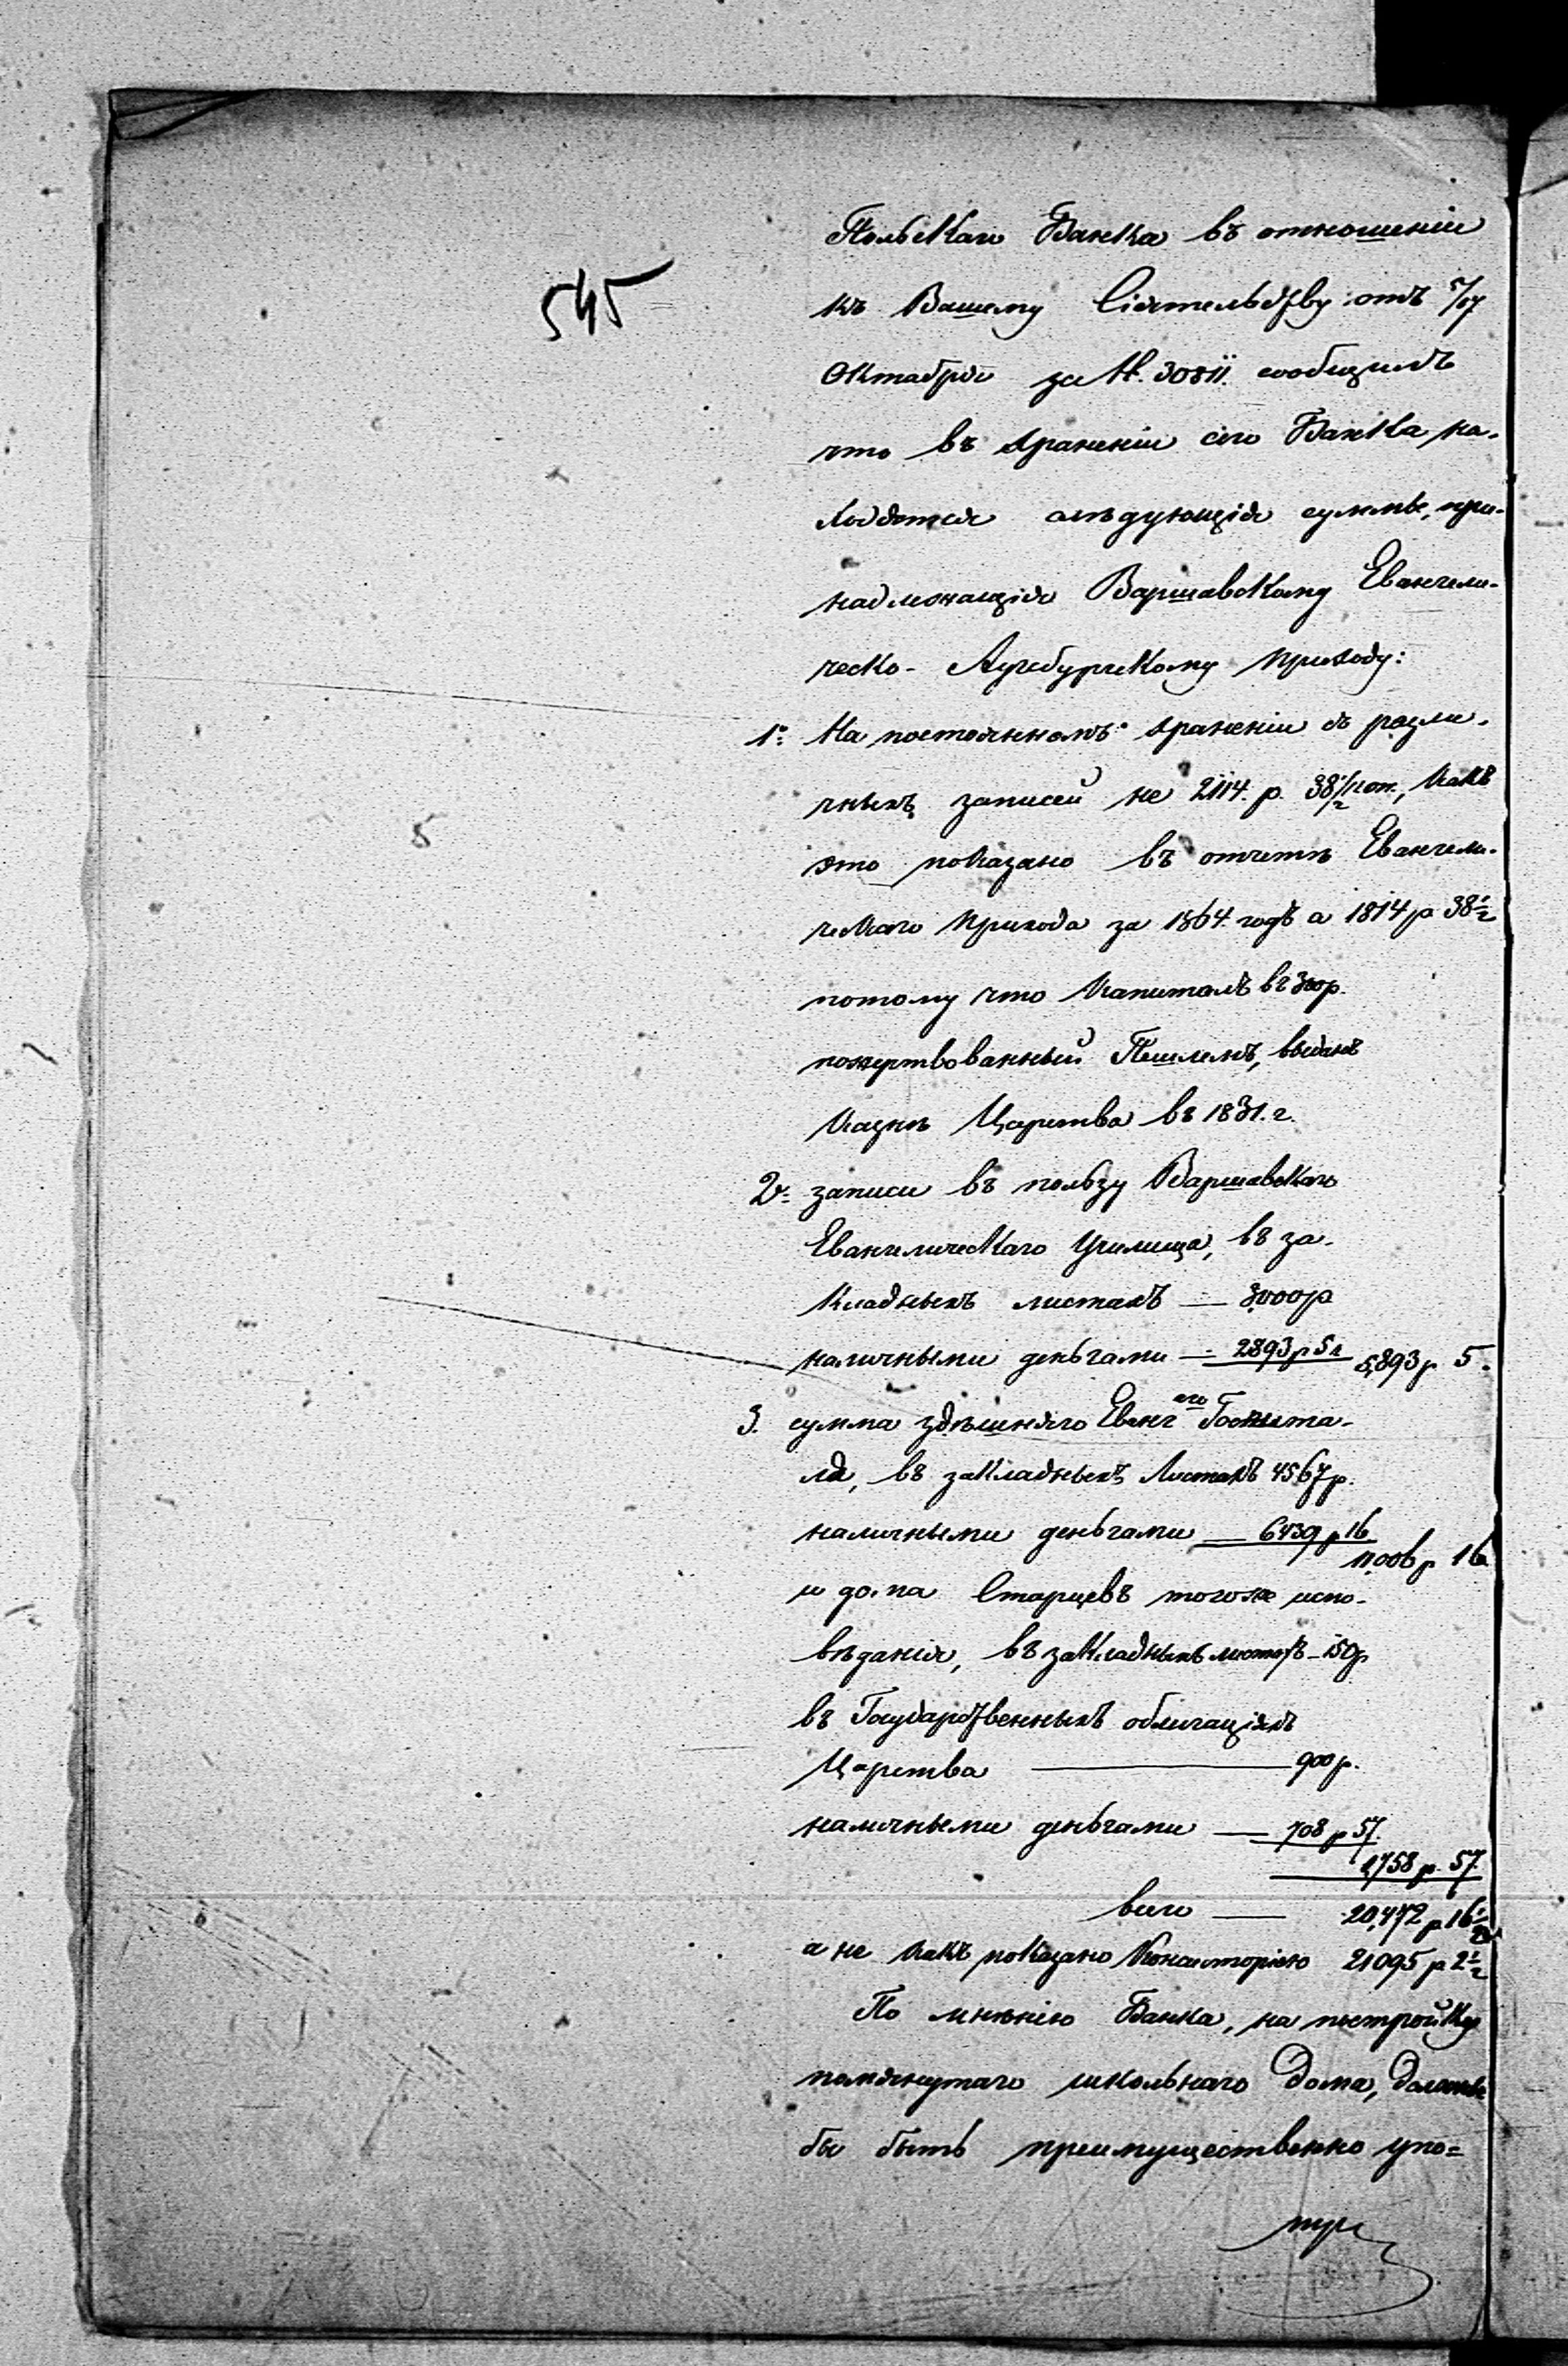 545
Польскаго Банка въ отношеніи
къ Вашему Сіятельству отъ 5/17
Октября за №. 30811. сообщилъ
что въ храненіи сего Банка на-
ходятся слѣдующія суммы, при-
надлежащія Варшавскому Евангели-
ческо-Аугсбургскому приходу:
1о: На постоянномъ храненіи съ разли-
чныхъ записей не 2114. р. 38 1/2 коп., какъ
это показано въ отчетѣ Евангели-
ческаго прихода за 1864. годъ а 1814 р 38 1/2
потому что капиталъ въ 300р.
пожертвованный выданъ
казнѣ Царства въ 1831. г.
2о: записи въ пользу Варшавскаго
Евангелическаго Училища, въ за-
кладныхъ листахъ — 3000р
наличными деньгами — 2893 р 5 к 5,893 р 5.
3. сумма здѣшняго Еванг его Госпита-
ля, въ закладныхъ Листахъ 4567р.
наличными деньгами — 6439 р 16
11,006 р 16
и дома Старцевъ тогоже испо-
вѣданія, въ закладныхъ листахъ - 150р
въ Государственныхъ облигаціяхъ
Царства — 900 р.
наличными деньгами — 708 р 57.
1,758 р. 57.
всего — 20,472 р 16 1/2
а не какъ показано Консисторіею 21095 р 2 1/2
По мнѣнію Банка, на постройку
помянутаго школьнаго дома, должны
бы быть преимущественно упо=